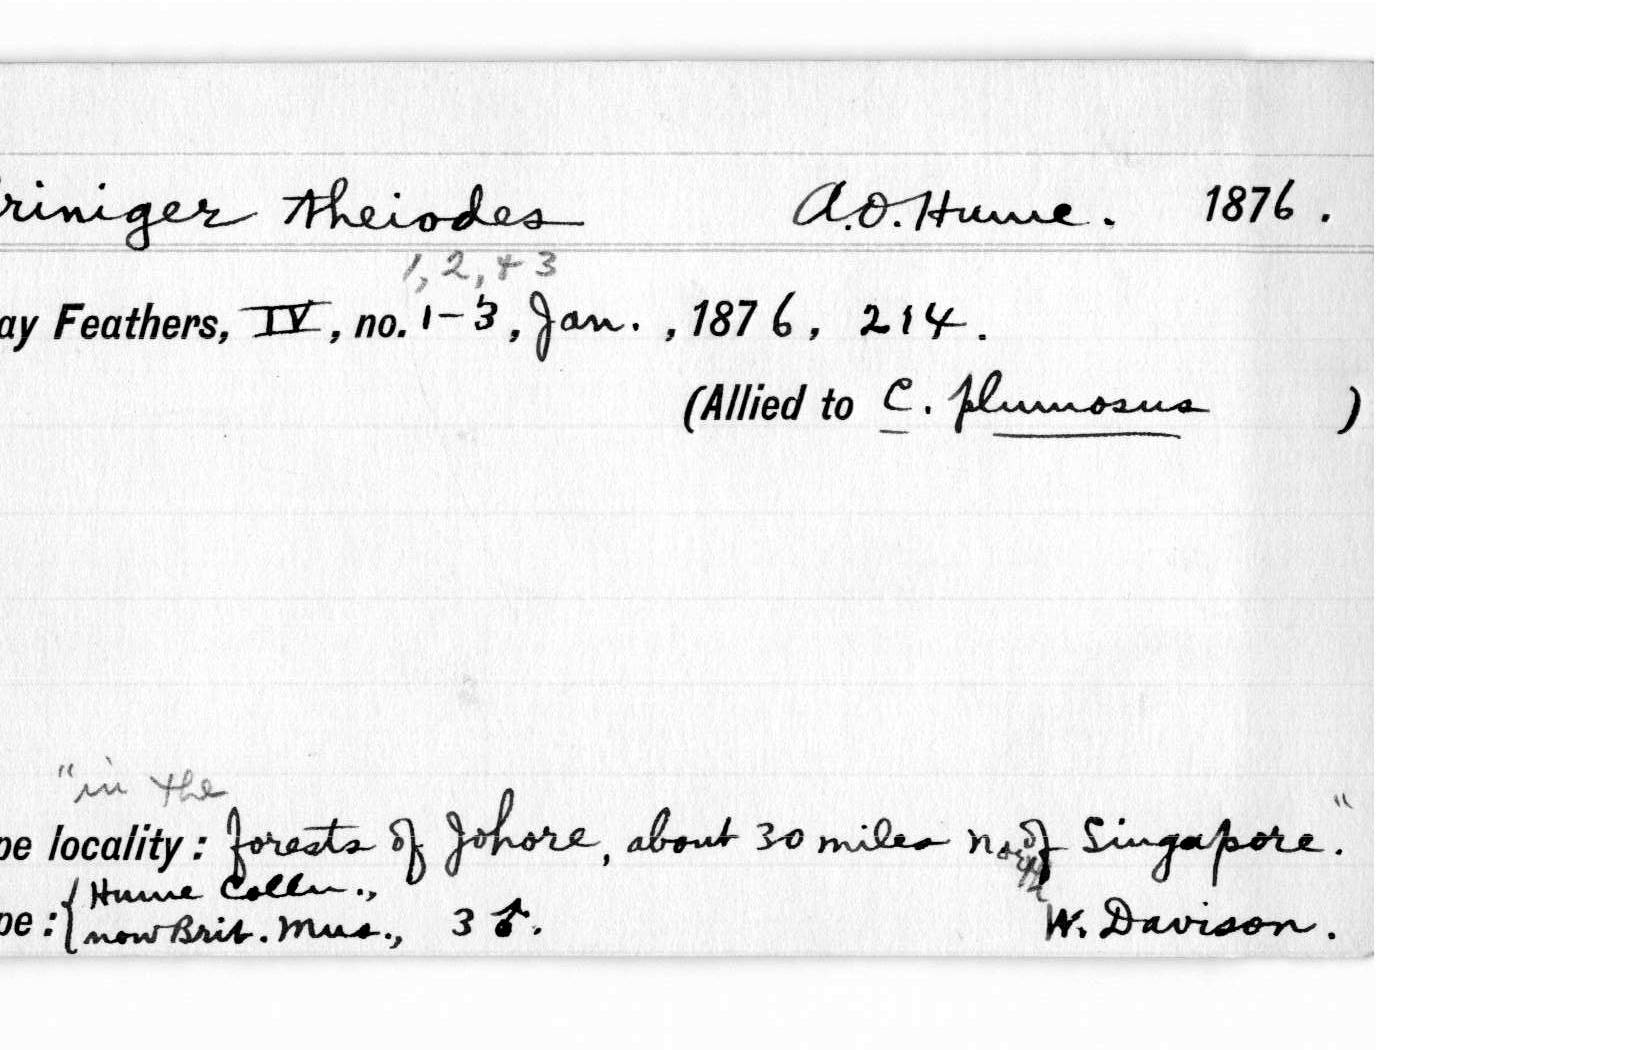 riniger theiodes A.O. Hume. 1876.
1, 2, + 3
ay Feathers, IV, no. 1-3, Jan. , 1876, 214.
(Allied to C. plumosus )
"in the
pe locality: forests of Johore, about 30 miles n. of Singapore."
Hume Colln.,
pe: now Brit. Mus., 3 ♂. W. Davison.